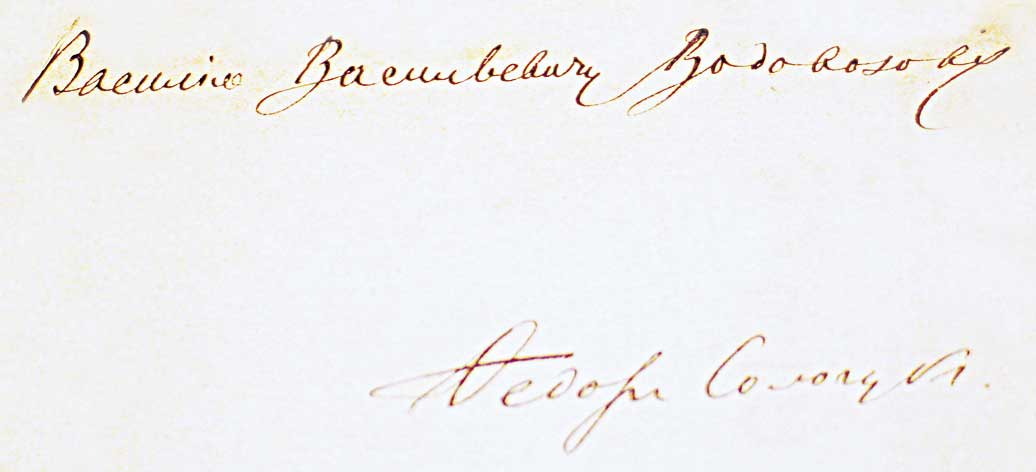 Василiю Васильевичу Водовозову
Федоръ Сологубъ.